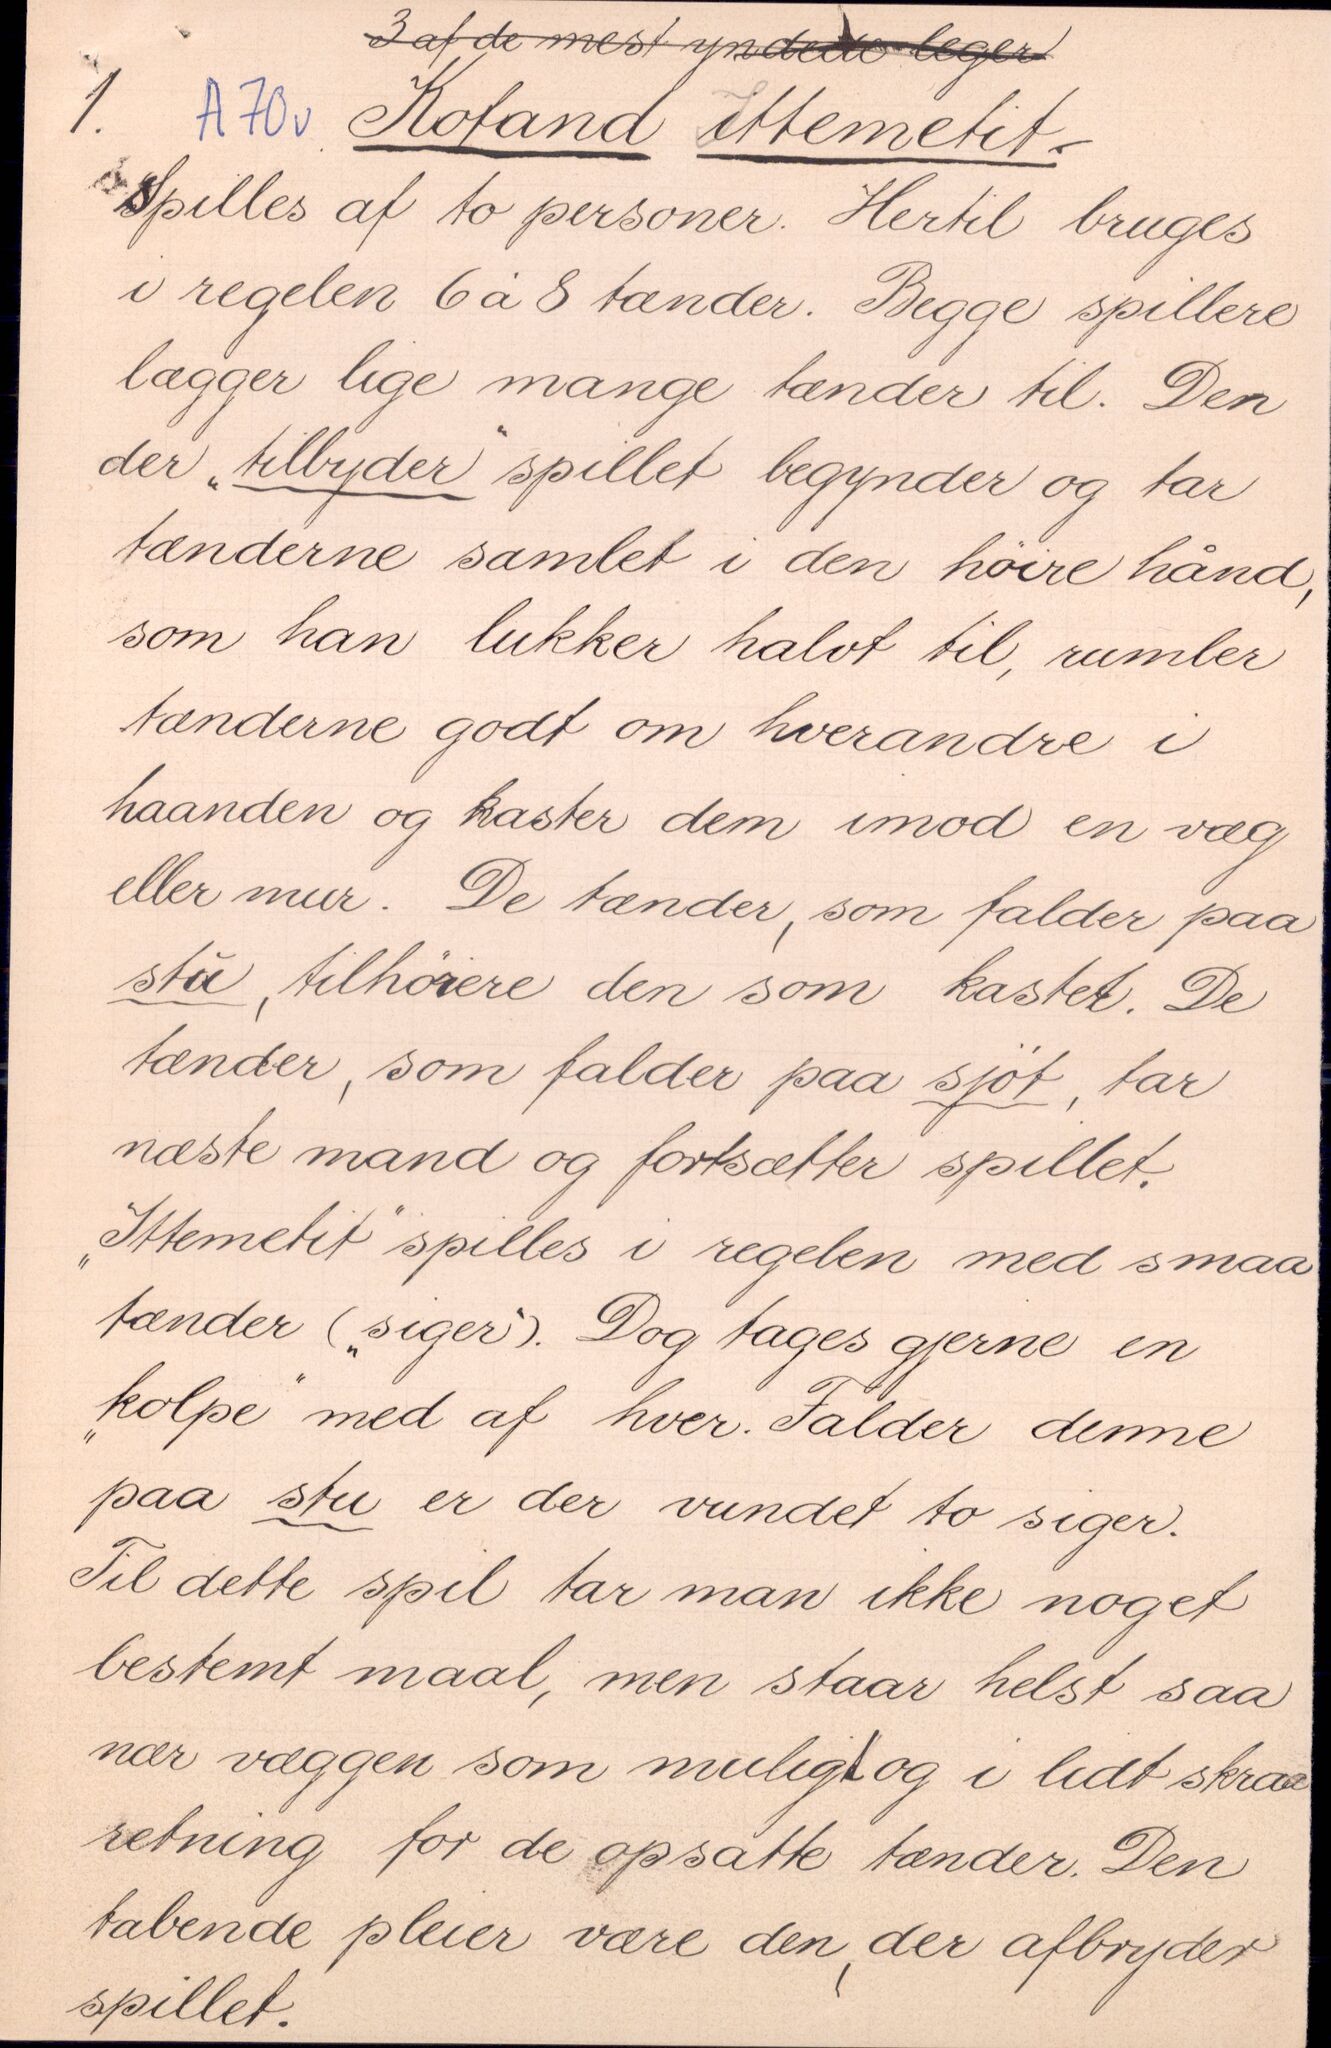 3 af de mest yndede leger
1. A 70v Kofand Ittemetit.
Spilles af to personer. Hertil bruges
i regelen 6 à 8 tænder. Begge spillere
lægger lige mange tænder til. Den
der „tilbyder“ spillet begynder og tar
tænderne samlet i den höire hånd,
som han lukker halvt til, rumler
tænderne godt om hverandre i
haanden og kaster dem imod en væg
eller mur. De tænder, som falder paa
stŭ, tilhörere den som kastet. De
tænder, som falder paa sjöt, tar
næste mand og fortsætter spillet.
„Ittemetit“ spilles i regelen med smaa
tænder („siger“). Dog tages gjerne en
„kolpe“ med af hver. Falder denne
paa stu er der vundet to siger.
Til dette spil tar man ikke noget
bestemt maal, men staar helst saa
nær væggen som muligt og i lidt skraa
retning for de opsatte tænder. Den
tabende pleier være den, der afbryder
spillet.